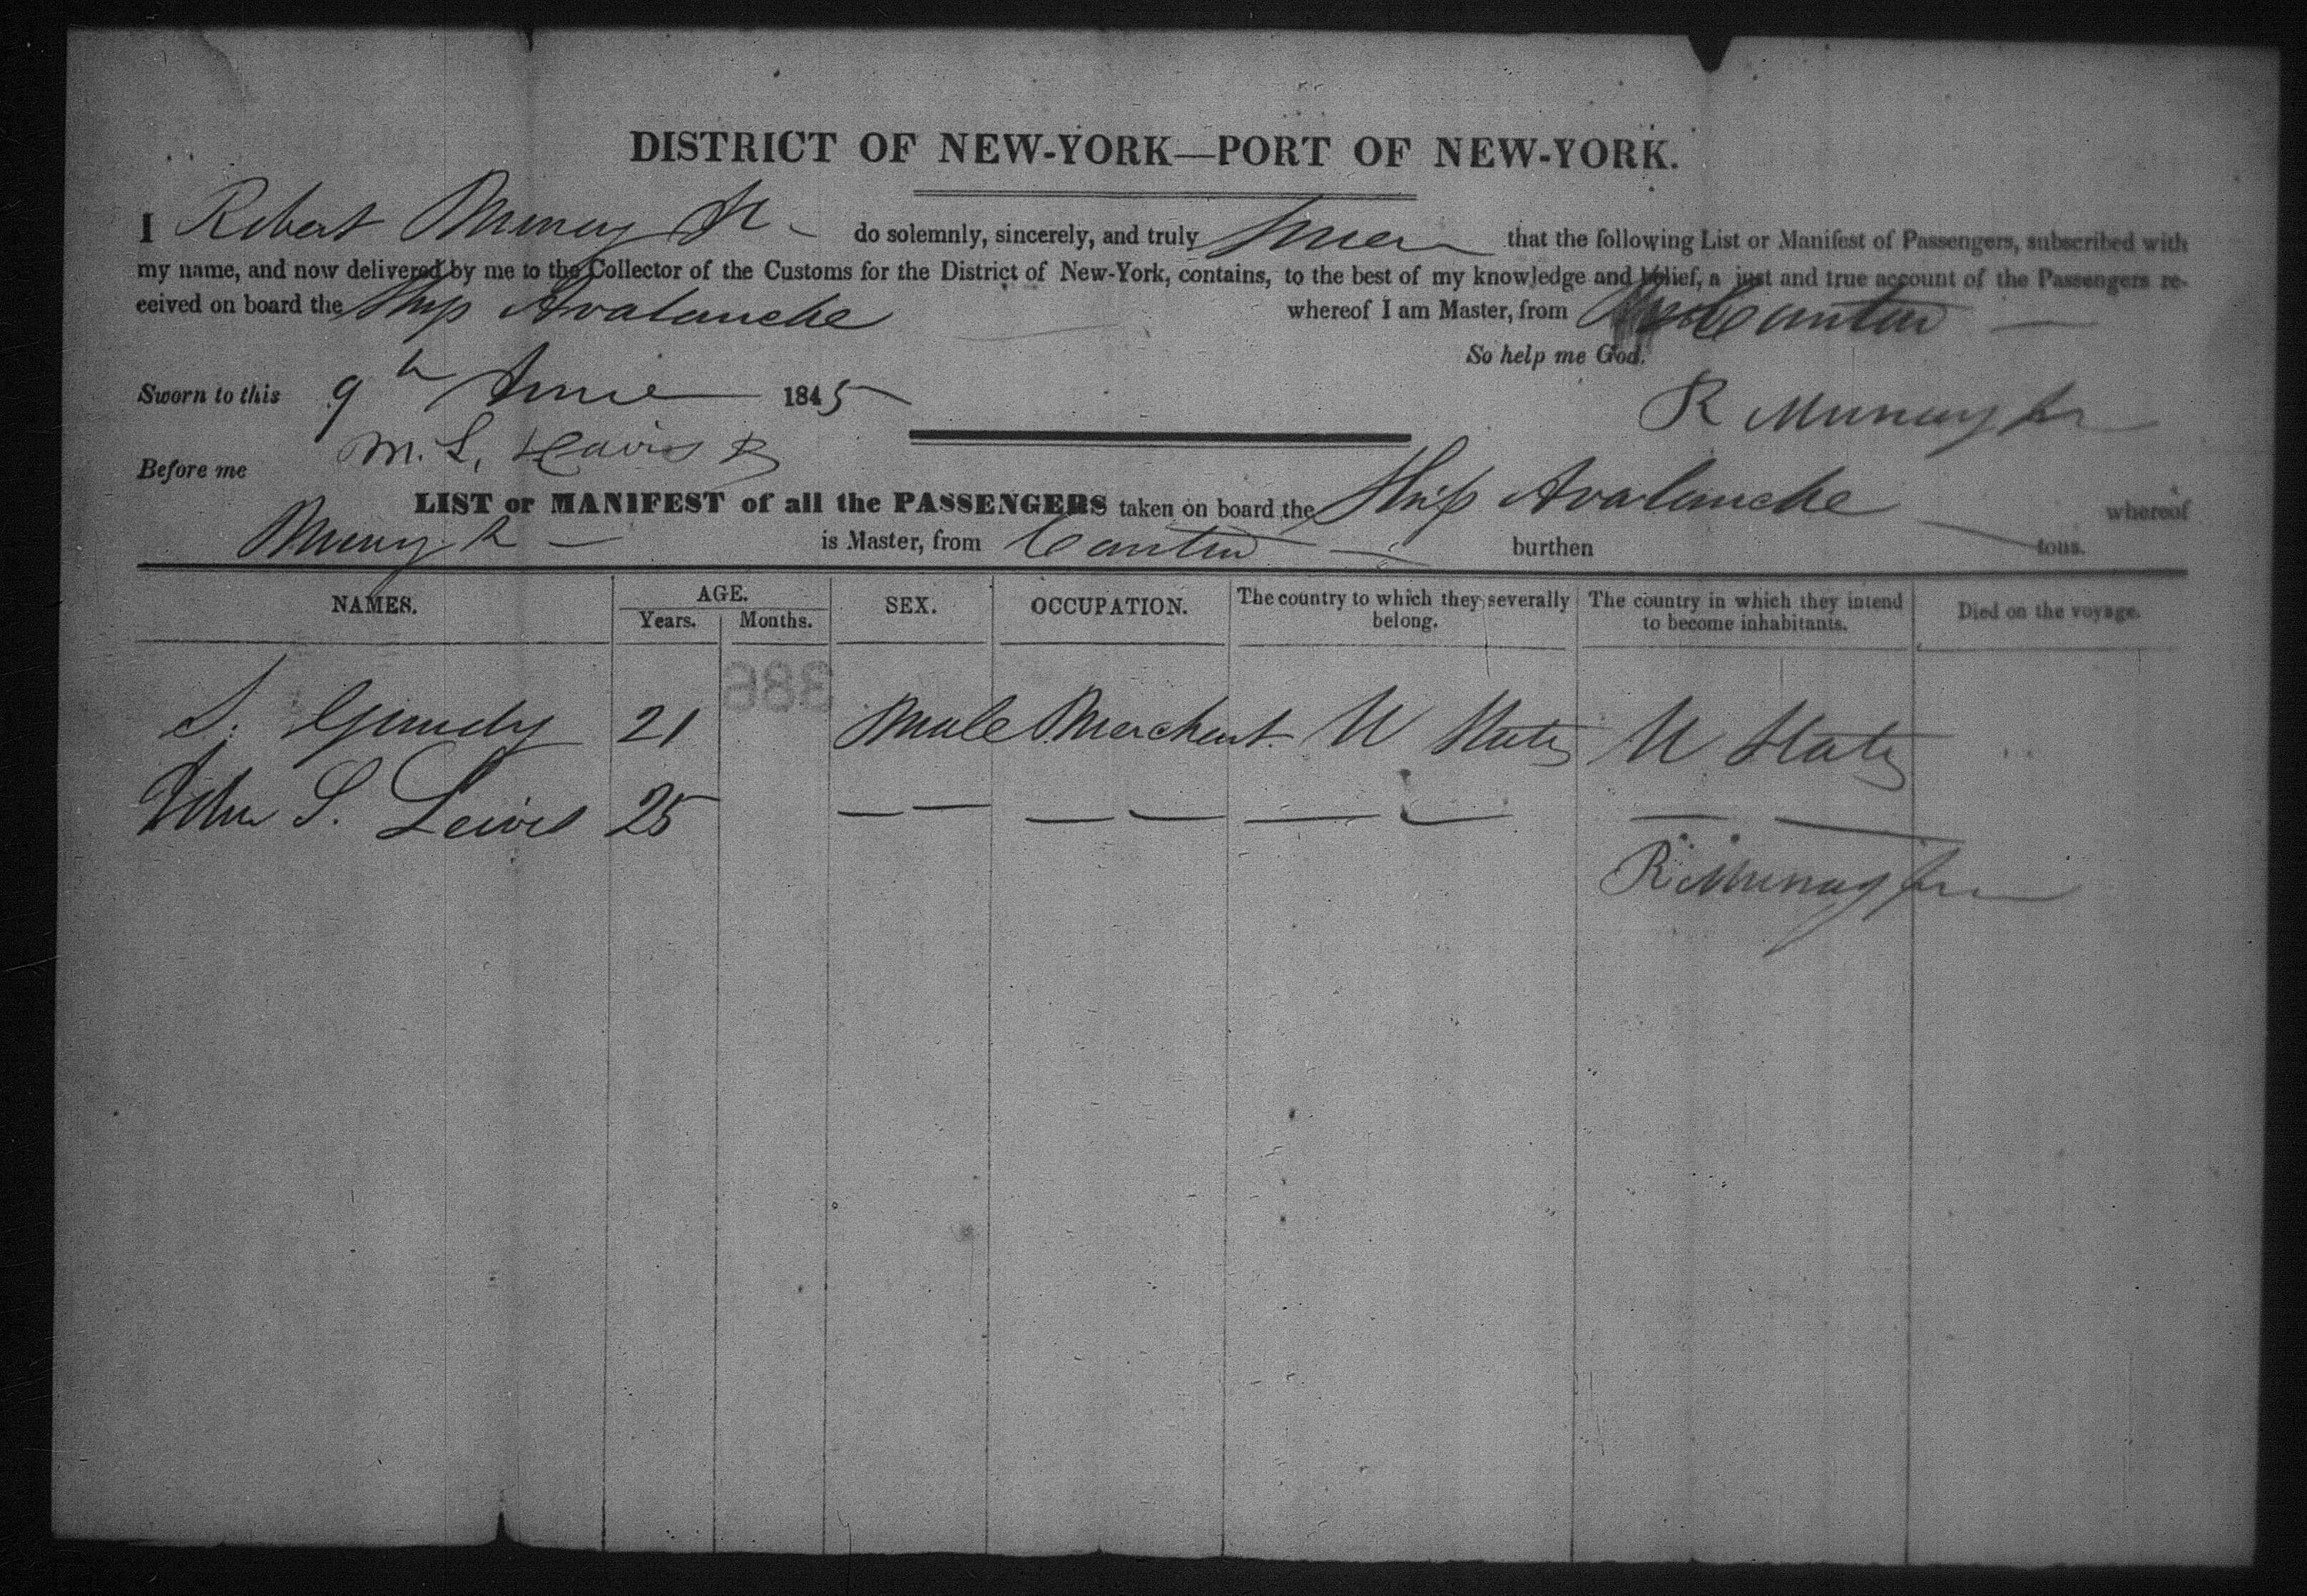 DISTRICT OF NEW-YORK—PORT OF NEW-YORK.
I Robert Murray Jr do solemnly, sincerely, and truly swear that the following List or Manifest of Passengers, subscribed with
my name, and now delivered by me to the Collector of the Customs for the District of New-York, contains, to the best of my knowledge and belief, a just and true account of the Passengers re-
ceived on board the Ship Avalanche whereof I am Master, from Canton
So help me God.
Sworn to this 9th June 1845
R Murray Jr
Before me M. L. Davis
LIST or MANIFEST of all the PASSENGERS taken on board the Ship Avalanche whereof
Murray Jr is Master, from Canton burthen tons.
NAMES. AGE. Years. Months. SEX. OCCUPATION. The country to which they severally belong. The country in which they intend to become inhabitants. Died on the voyage.
386
S. 21 Male Merchant U States U States
John S. Lewis 25 — — — — — — — —
R Murray Jr